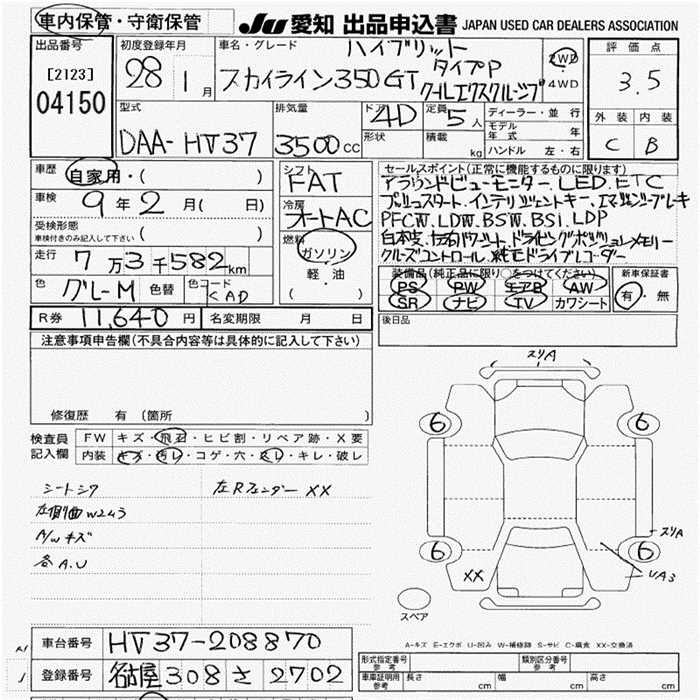 車内保管・守衛保管
JU 愛知 出品申込書 JAPAN USED CAR DEALERS ASSOCIATION
出品番号
[2123]
04150
初度登録年月
28 1月
車名・グレード
ハイブリット
スカイライン350GT タイプP
クールエクスクルーシブ
2WD
・
4WD
評価点
3.5
外装 内装
C B
型式
DAA-HV37
排気量
3500cc
ドア 4D
形状
定員 5人
積載 kg
ディーラー・並行
モデル年式 年
ハンドル 左・右
車歴 自家用・( )
車検 9年2月( 日)
受検形態
車検付きのみ記入して下さい( )
走行 7万3千582km
色 グレーM 色替 色コード CAD
シフト
FAT
冷房
オートAC
燃料
ガソリン
・
軽・油
( )
セールスポイント(正常に機能するものに限ります)
アラウンドビューモニター.LED.ETC
プッシュスタート.インテリジェントキー.エマージェンシーブレーキ
PFCW.LDW.BSW.BSI.LDP
白本皮.左右パワーシート.ドライビングポジションメモリー
クルーズコントロール.純正ドライブレコーダー
装備品(純正品に限り○をつけてください)
PS PW エアB AW
SR ナビ TV カワシート
新車保証書
有・無
R券 11,640円 名変期限 月 日
後日品
注意事項申告欄(不具合内容等は具体的に記入して下さい)
修復歴 有 (箇所 )
検査員
記入欄
FW キズ・飛石・ヒビ割・リペア跡・X要
内装 キズ・汚レ・コゲ・穴・スレ・キレ・破レ
シートシワ
左Rフェンダー XX
左側面W2よう
A/Wキズ
各A.U
スリA
6
6
スリA
6
6
XX
UA3
スペア
A-キズ E-エクボ U-凹み W-補修跡 S-サビ C-腐食 XX-交換済
車台番号 HV37-208870
登録番号 名古屋 308 さ 2702
形式指定番号
参考
類別区分番号
参考
車庫証明用
参考
長さ cm 幅 cm 高さ cm